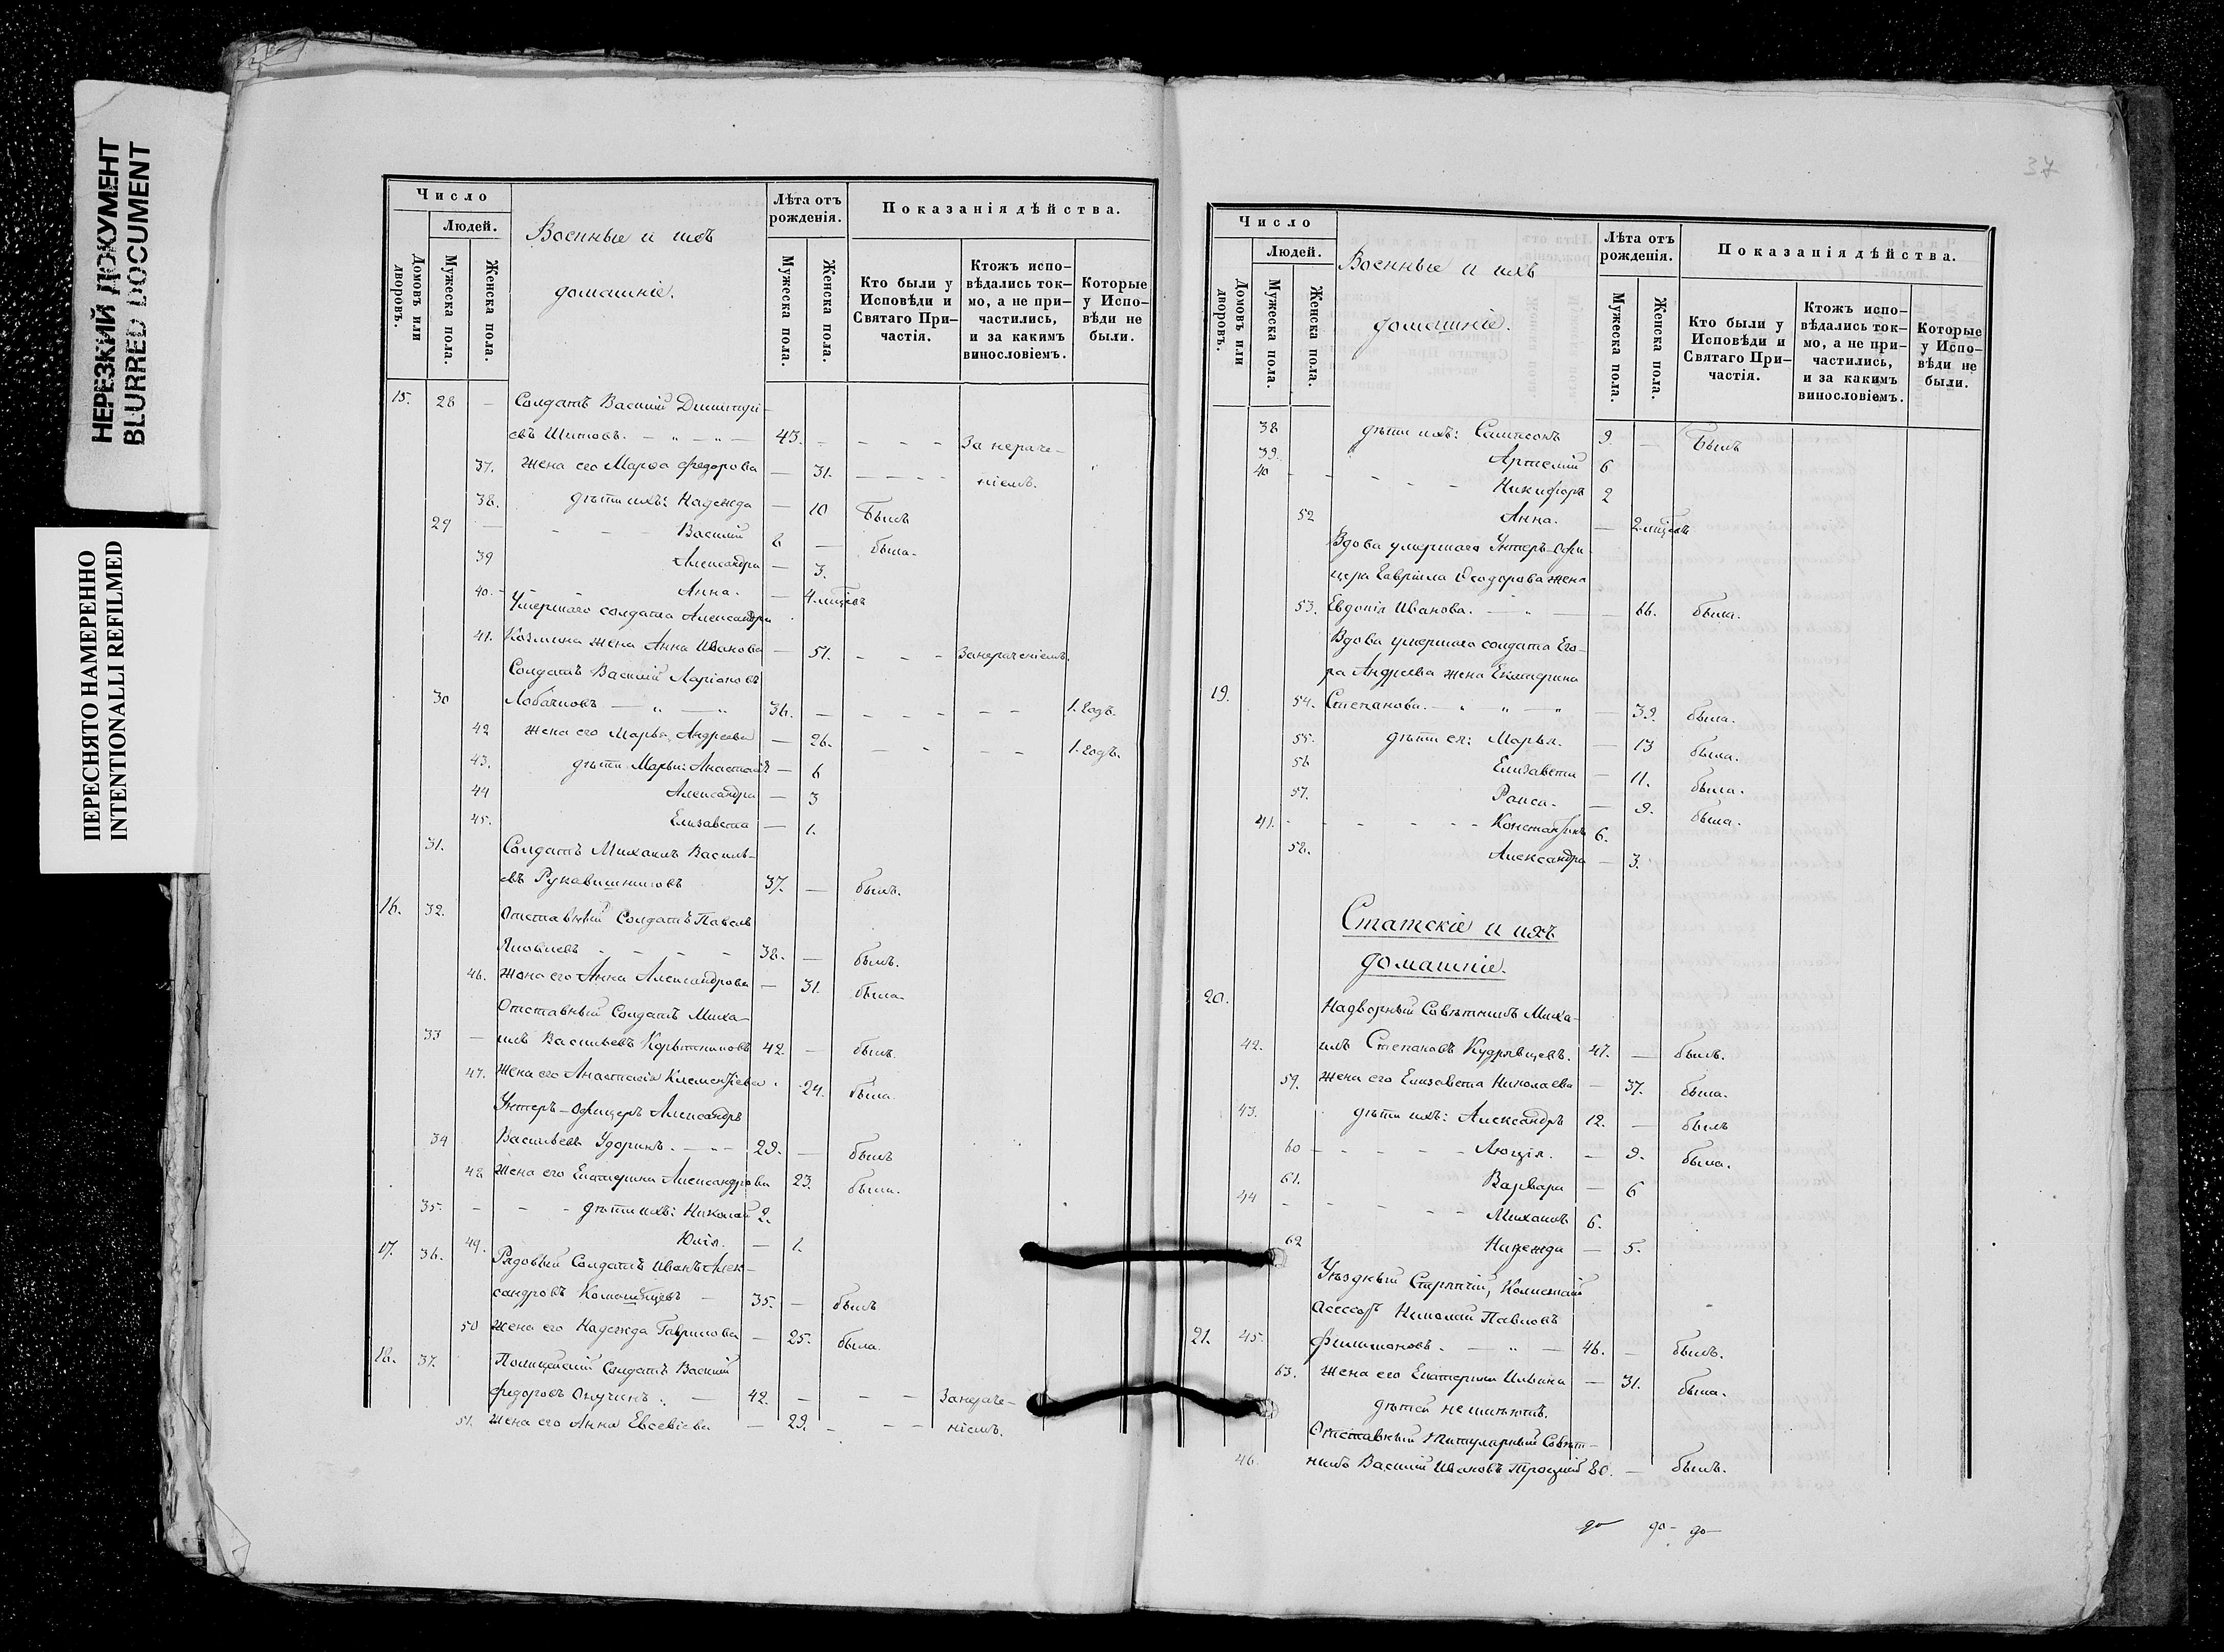 НЕРЕЗКИЙ ДОКУМЕНТ
BLURRED DOCUMENT
ПЕРЕСНЯТО НАМЕРЕННО
INTENTIONALLI REFILMED
Число
Людей.
Домовъ или дворовъ.
Мужеска пола.
Женска пола.
Военные и ихъ
домашніе.
Лѣта отъ рожденія.
Мужеска пола.
Женска пола.
Показанія дѣйства.
Кто были у Исповѣди и Святаго При-частія.
Ктожъ испо-вѣдались ток-мо, а не при-частились, и за какимъ винословіемъ.
Которые у Испо-вѣди не были.
15. 28 — Солдатъ Василій Димитрі-
евъ Шитовъ. — „ — „ — 43. - - - - За нераче-
37. жена его Марѳа Федорова — 31. - - - - ніемъ.
38. дѣти ихъ: Надежда — 10 Былъ
29 — Василій 8 — была.
39 Александра — 3.
40. Анна. — 4 мѣсяцевъ
Умершаго солдата Александра
41. Козмина жена Анна Иванова — 51. - - - За нераченіемъ.
Солдатъ Василій Ларіоновъ
30 Лобачновъ — „ — „ 36. — - - - - 1. годъ.
42 жена его Марья Андреева — 26. - - - - 1. годъ.
43. дѣти Марьи: Анастасія — 6
44 Александра — 3
45. Елизавета — 1.
31. Солдатъ Михаилъ Василь-
евъ Рукавишниковъ 37. — былъ.
16. 32. Отставный Солдатъ Павелъ
Яковлевъ - - - - 38. — былъ.
46. жена его Анна Александрова — 31. была.
Отставный Солдатъ Миха-
33 — илъ Васильевъ Корытниковъ 42. — былъ.
47. жена его Анастасія Клементіева. 24. была.
Унтеръ-Офицеръ Александръ
34 Васильевъ Ударинъ. — „ — 29. — былъ
48 жена его Екатерина Александрова 23. была.
35. - - - дѣти ихъ: Николай 2.
49. Юлія. — 1.
17. 36. Рядовый Солдатъ Иванъ Алек-
сандровъ — 35. — былъ
50 жена его Надежда Гаврилова — 25. была.
18. 37. Полицейскій Солдатъ Василій
Федоровъ Онучинъ. — 42. - - - За нераче-
51. жена его Анна Евсевіева — 29. - - - ніемъ.
37
Число
Людей.
Домовъ или дворовъ.
Мужеска пола.
Женска пола.
Военные и ихъ
домашніе.
Лѣта отъ рожденія.
Мужеска пола.
Женска пола.
Показанія дѣйства.
Кто были у Исповѣди и Святаго При-частія.
Ктожъ испо-вѣдались ток-мо, а не при-частились, и за какимъ винословіемъ.
Которые у Испо-вѣди не были.
38 дѣти ихъ: Сампсонъ 9. — Былъ
39. Артемій 6
40 - - - - - Никифоръ 2
52 Анна. — 2 мѣсяцевъ
Вдова умершаго Унтеръ-Офи-
цера Гавріила Ѳеодорова жена
53. Евдокія Иванова. — „ — 66. была.
Вдова умершаго солдата Его-
ра Андреева жена Екатерина
19. 54. Степанова. — „ — „ — 39. была.
55. дѣти ея: Марья. — 13 была.
56 Елизавета — 11. была.
57. Раиса. — 9. была.
41. - - - - - Константинъ 6.
58. Александра — 3.
Статскіе и ихъ
домашніе.
20. Надворный Совѣтникъ Миха-
42. илъ Степановъ Кудрявцевъ. 47. — былъ.
59. жена его Елизавета Николаева — 37. была.
43. дѣти ихъ: Александръ 12. — былъ
60 - - - - - Люція. — 9. была.
61. Варвара — 6
44 - - - - - Михаилъ 6.
62 Надежда — 5.
Уѣздный Стряпчій, Колежскій
Асессоръ Николай Павловъ
21. 45. Филимоновъ. — „ — 46. — былъ.
63. жена его Екатерина Ильина — 31. была.
дѣтей не имѣютъ.
Отставный Титулярный Совѣт-
46. никъ Василій Ивановъ Троицкій 80. — былъ.
до до- до-